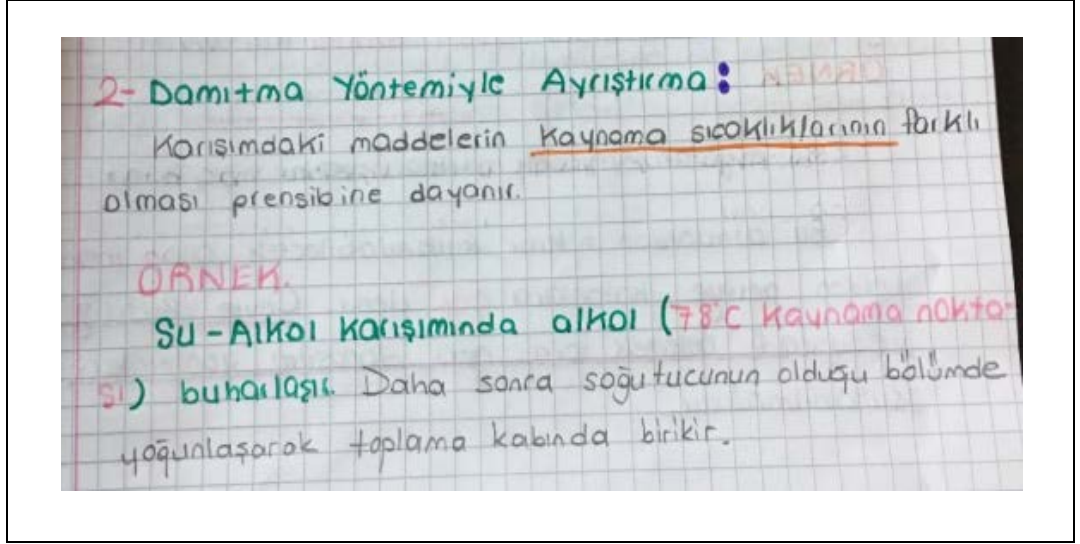 2- Damıtma Yöntemiyle Ayrıştırma:
Karışımdaki maddelerin kaynama sıcaklıklarının farklı
olması prensibine dayanır.
ÖRNEK.
Su-Alkol karışımında alkol (78°C kaynama nokta-
sı) buharlaşır. Daha sonra soğutucunun olduğu bölümde
yoğunlaşarak toplama kabında birikir.